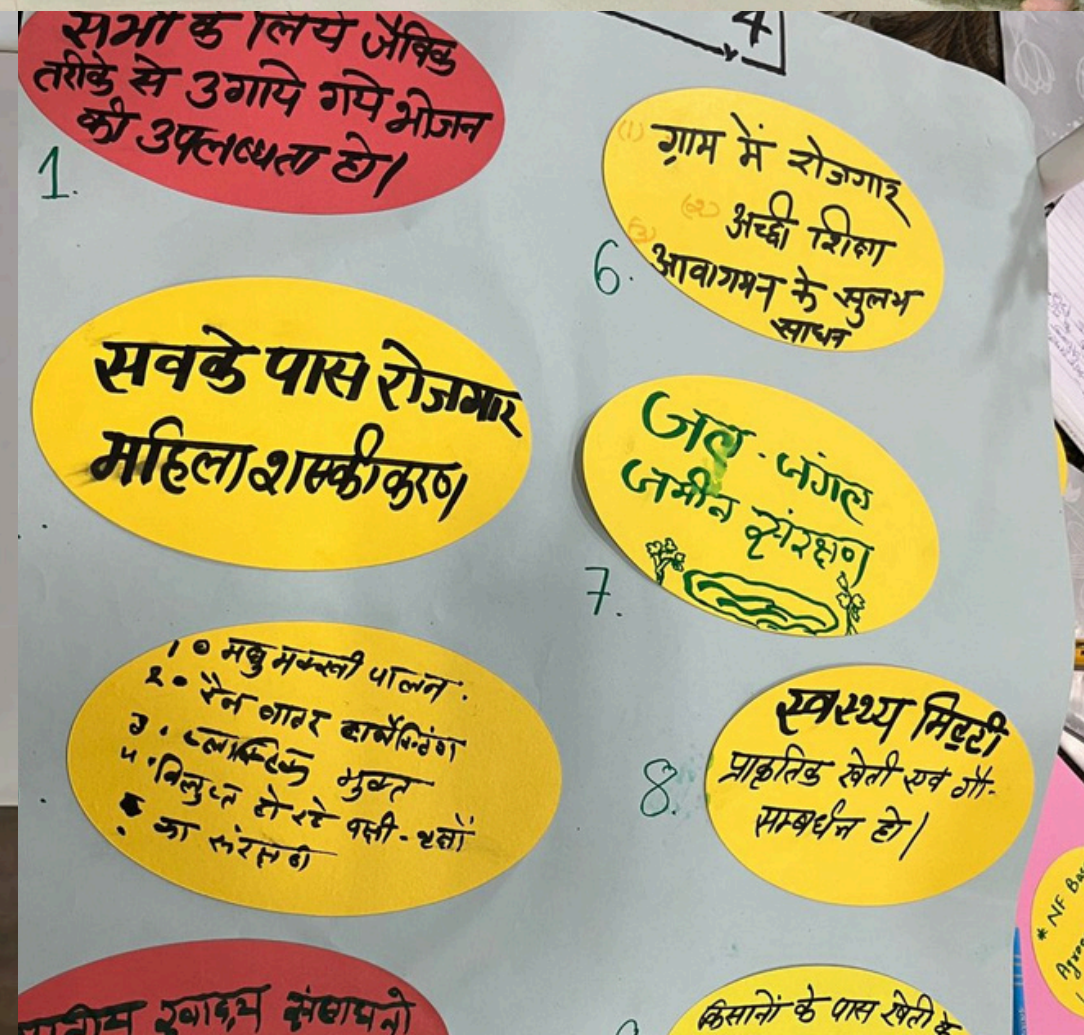 4
सभी के लिये जैविक
तरीके से उगाये गये भोजन
की उपलब्धता हो।
1.
सवके पास रोजगार
महिला शस्कीकरण
1० मधुमक्खी पालन.
2. रैन वाटर हार्वेस्टिंग
3. प्लास्टिक मुक्त
4. विलुप्त हो रहे पक्षी-वृक्षों
का संरक्षण
खाद्य संसाधनो
(1) ग्राम में रोजगार
(2) अच्छी शिक्षा
(3) आवागमन के सुलभ
साधन
6.
जल. जंगल
जमीन संरक्षण
7.
स्वस्थ्य मिट्टी
प्राकृतिक खेती एवं गौ-
सम्बर्धन हो।
8.
किसानों के पास खेती के
* NF